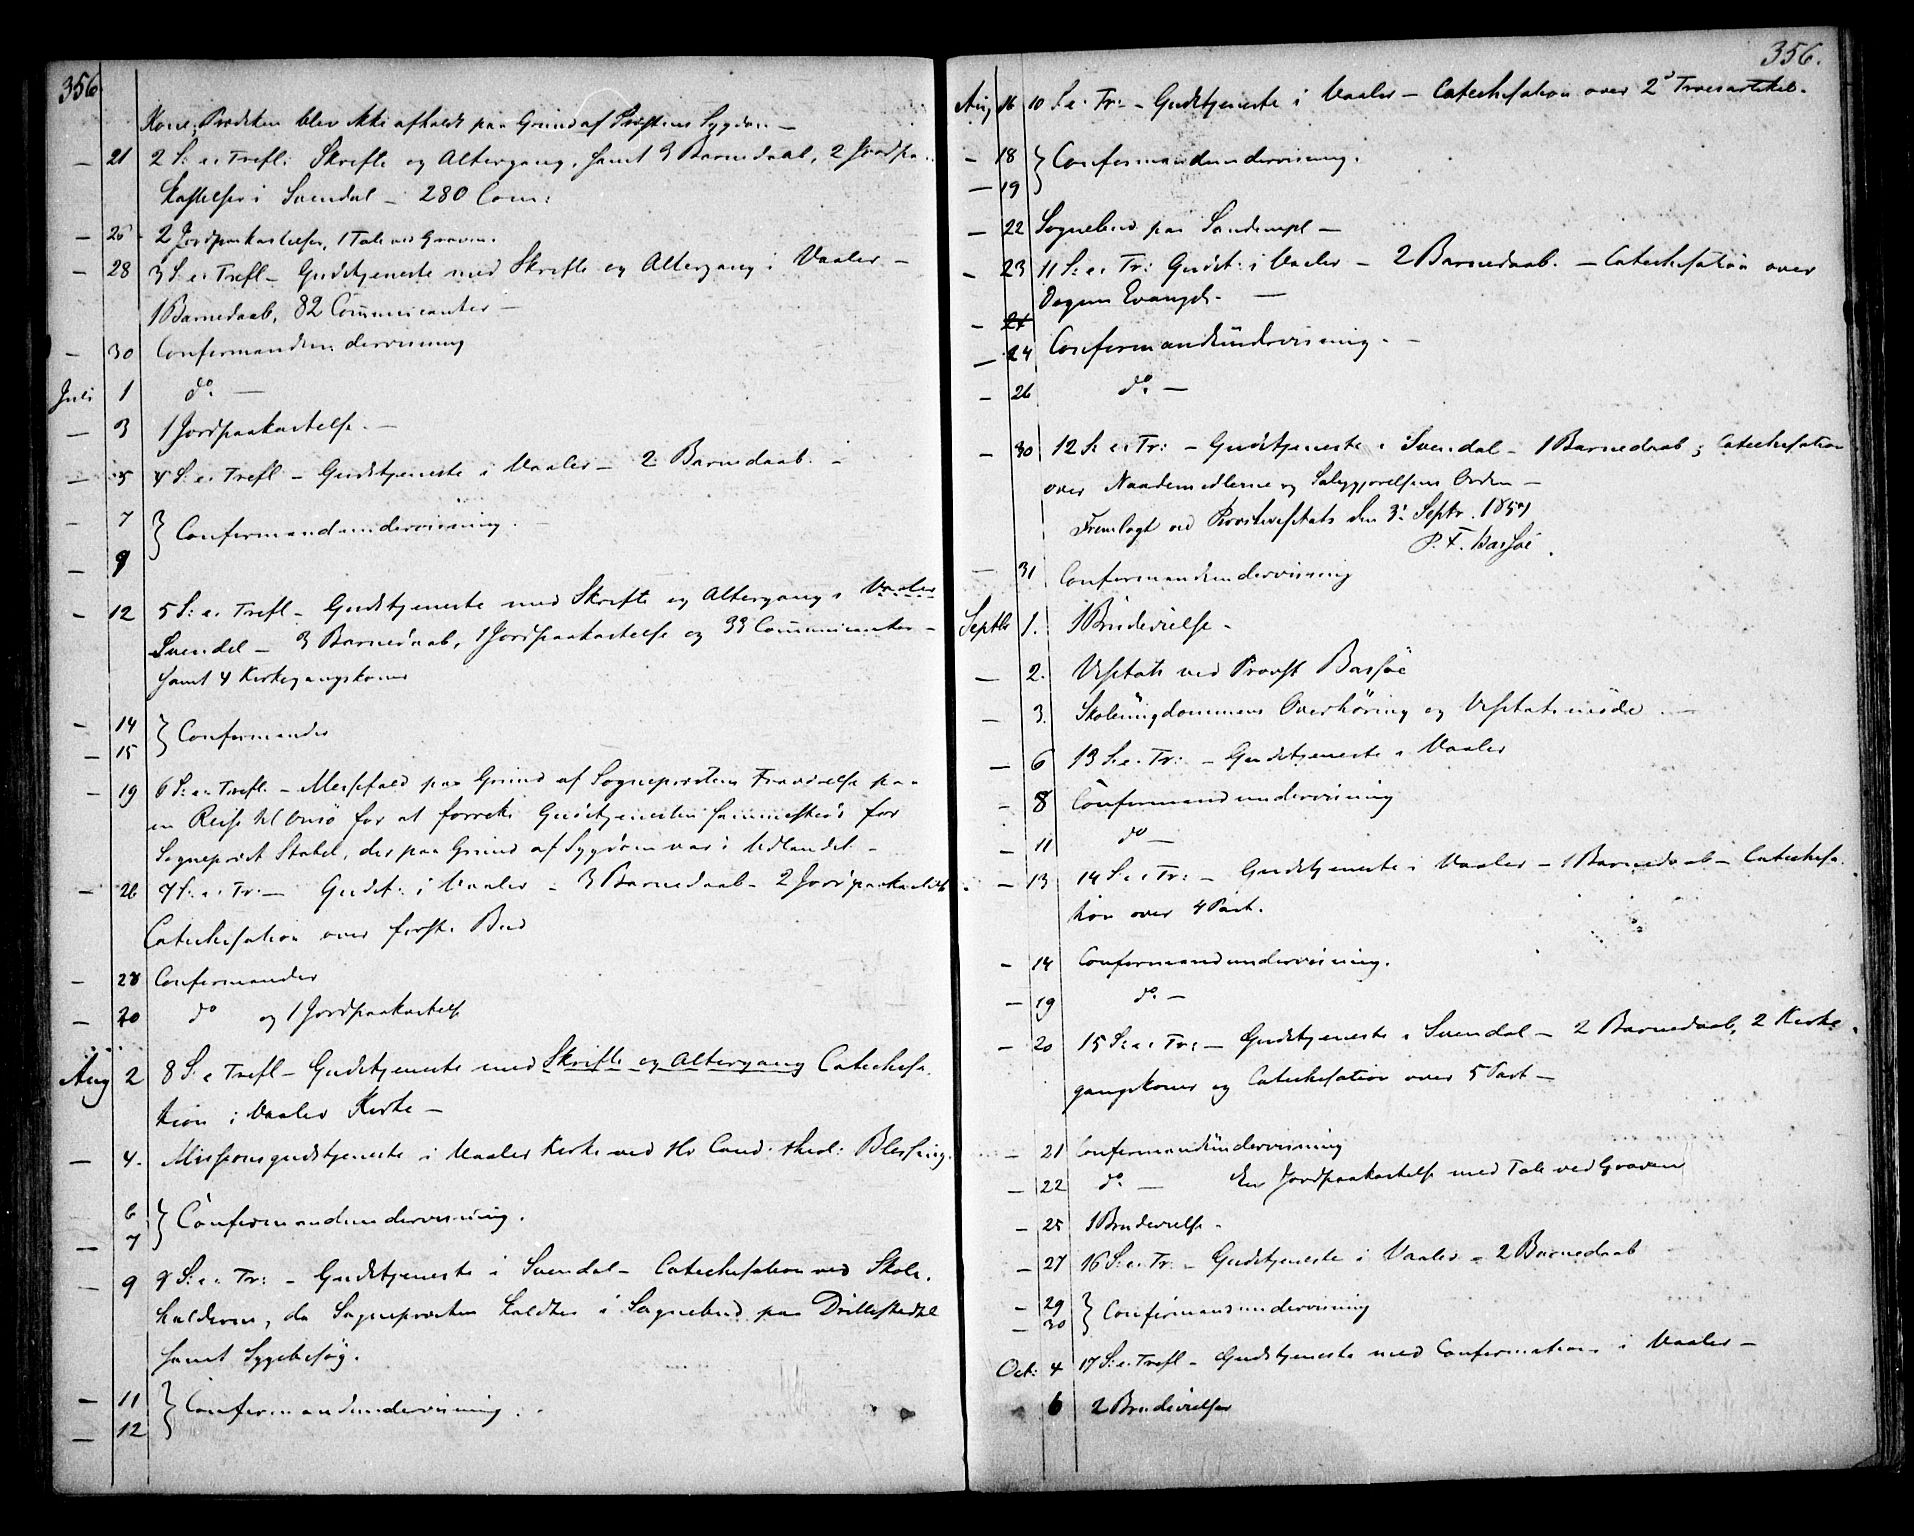 356
Kone; Prædiken blev ikke afholdt paa Grund af Præstens Sygdom —
— 21 2 S: e: Trefl: Skrifte og Altergang, samt 9 Barnedaab, 2 Jordpaa-
kastelser i Svendal — 280 Com:
— 25 2 Jordpaakastelser, 1 Tale ved Graven.
— 28 3 S: e: Trefl — Gudstjeneste med Skrifte og Altergang i Vaaler —
1 Barnedaab, 82 Communicanter —
— 30 Confirmandundervisning
Juli 1 do. —
— 3 1 Jordpaakastelse. —
— 5 4 S: e: Trefl — Gudstjeneste i Vaaler — 2 Barnedaab. —
— 7 } Confirmandundervisning. —
— 9
— 12 5 S: e: Trefl — Gudstjeneste med Skrifte og Altergang i Vaaler
Svendal — 3 Barnedaab, 1 Jordpaakastelse og 33 Communicanter —
samt 4 Kirkegangskoner
— 14 } Confirmander
— 15
— 19 6 S: e: Trefl. — Messefald paa Grund af Sognepræstens Fraværelse paa
en Reise til for at forrette Gudstjenesten sammesteds for
Sognepræst Stabel, der paa Grund af Sygdom var i Udlandet —
— 26 7 S: e: Tr: — Gudst: i Vaaler — 3 Barnedaab — 2 Jordpaakastelser.
Catechisation over første Bud
— 28 Confirmander
— 30 do og 1 Jordpaakastelse
Aug 2 8 S. e Trefl — Gudstjeneste med Skrifte og Altergang Catechisa-
tion i Vaaler Kirke —
— 4. Missionsgudstjeneste i Vaaler Kirke ved Hr Cand. theol: Blessing.
6 } Confirmandundervisning.
— 7
— 9 9 S: e: Tr: — Gudstjeneste i Svendal — Catechisation ved Skole-
holderen, da Sognepræsten kaldtes i Sognebud paa
samt Sygebesøg.
— 11 } Confirmandundervisning.
— 12
356.
Aug 16 10 S. e. Tr: — Gudstjeneste i Vaaler — Catechisation over 2d Troesartikel.
— 18 } Confirmandundervisning.
— 19
— 22 Sognebud paa —
— 23 11 S: e: Tr: Gudst: i Vaaler — 2 Barnedaab. — Catechisation over
Dagens Evangel. —
— 24
— 24 Confirmandundervisning. —
— 26 do. —
— 30 12 S: e: Tr: — Gudstjeneste i Svendal — 1 Barnedaab; Catechisation
over Naademidlerne og Saliggjørelsens Orden —
Fremlagt ved Provstevisitats den 3d Septr. 1857
P. F. Bassøe.
— 31 Confirmandundervisning
Septbr 1. 1 Brudevielse —
— 2. Visitats ved Provst Bassøe
— 3. Skoleungdommens Overhøring og Visitatsmøde —
— 6 13 S. e. Tr: — Gudstjeneste i Vaaler
— 8 Confirmandundervisning
— 11 do —
— 13 14 S. e. Tr: — Gudstjeneste i Vaaler — 1 Barnedaab — Catechisa-
tion over 4 Part.
— 14 Confirmandundervisning.
— 19 do. —
— 20 15 S: e: Tr: — Gudstjeneste i Svendal — 2 Barnedaab, 2 Kirke-
gangskoner og Catechisation over 5 Part —
— 21 Confirmandundervisning
— 22 do. — En Jordpaakastelse med Tale ved Graven
— 25 1 Brudevielse.
— 27 16 S: e: Tr: — Gudstjeneste i Vaaler — 2 Barnedaab
— 29 } Confirmandundervisning
— 30
Oct: 4 17 S: e: Trefl — Gudstjeneste med Confirmation i Vaaler —
6 2 Brudevielser